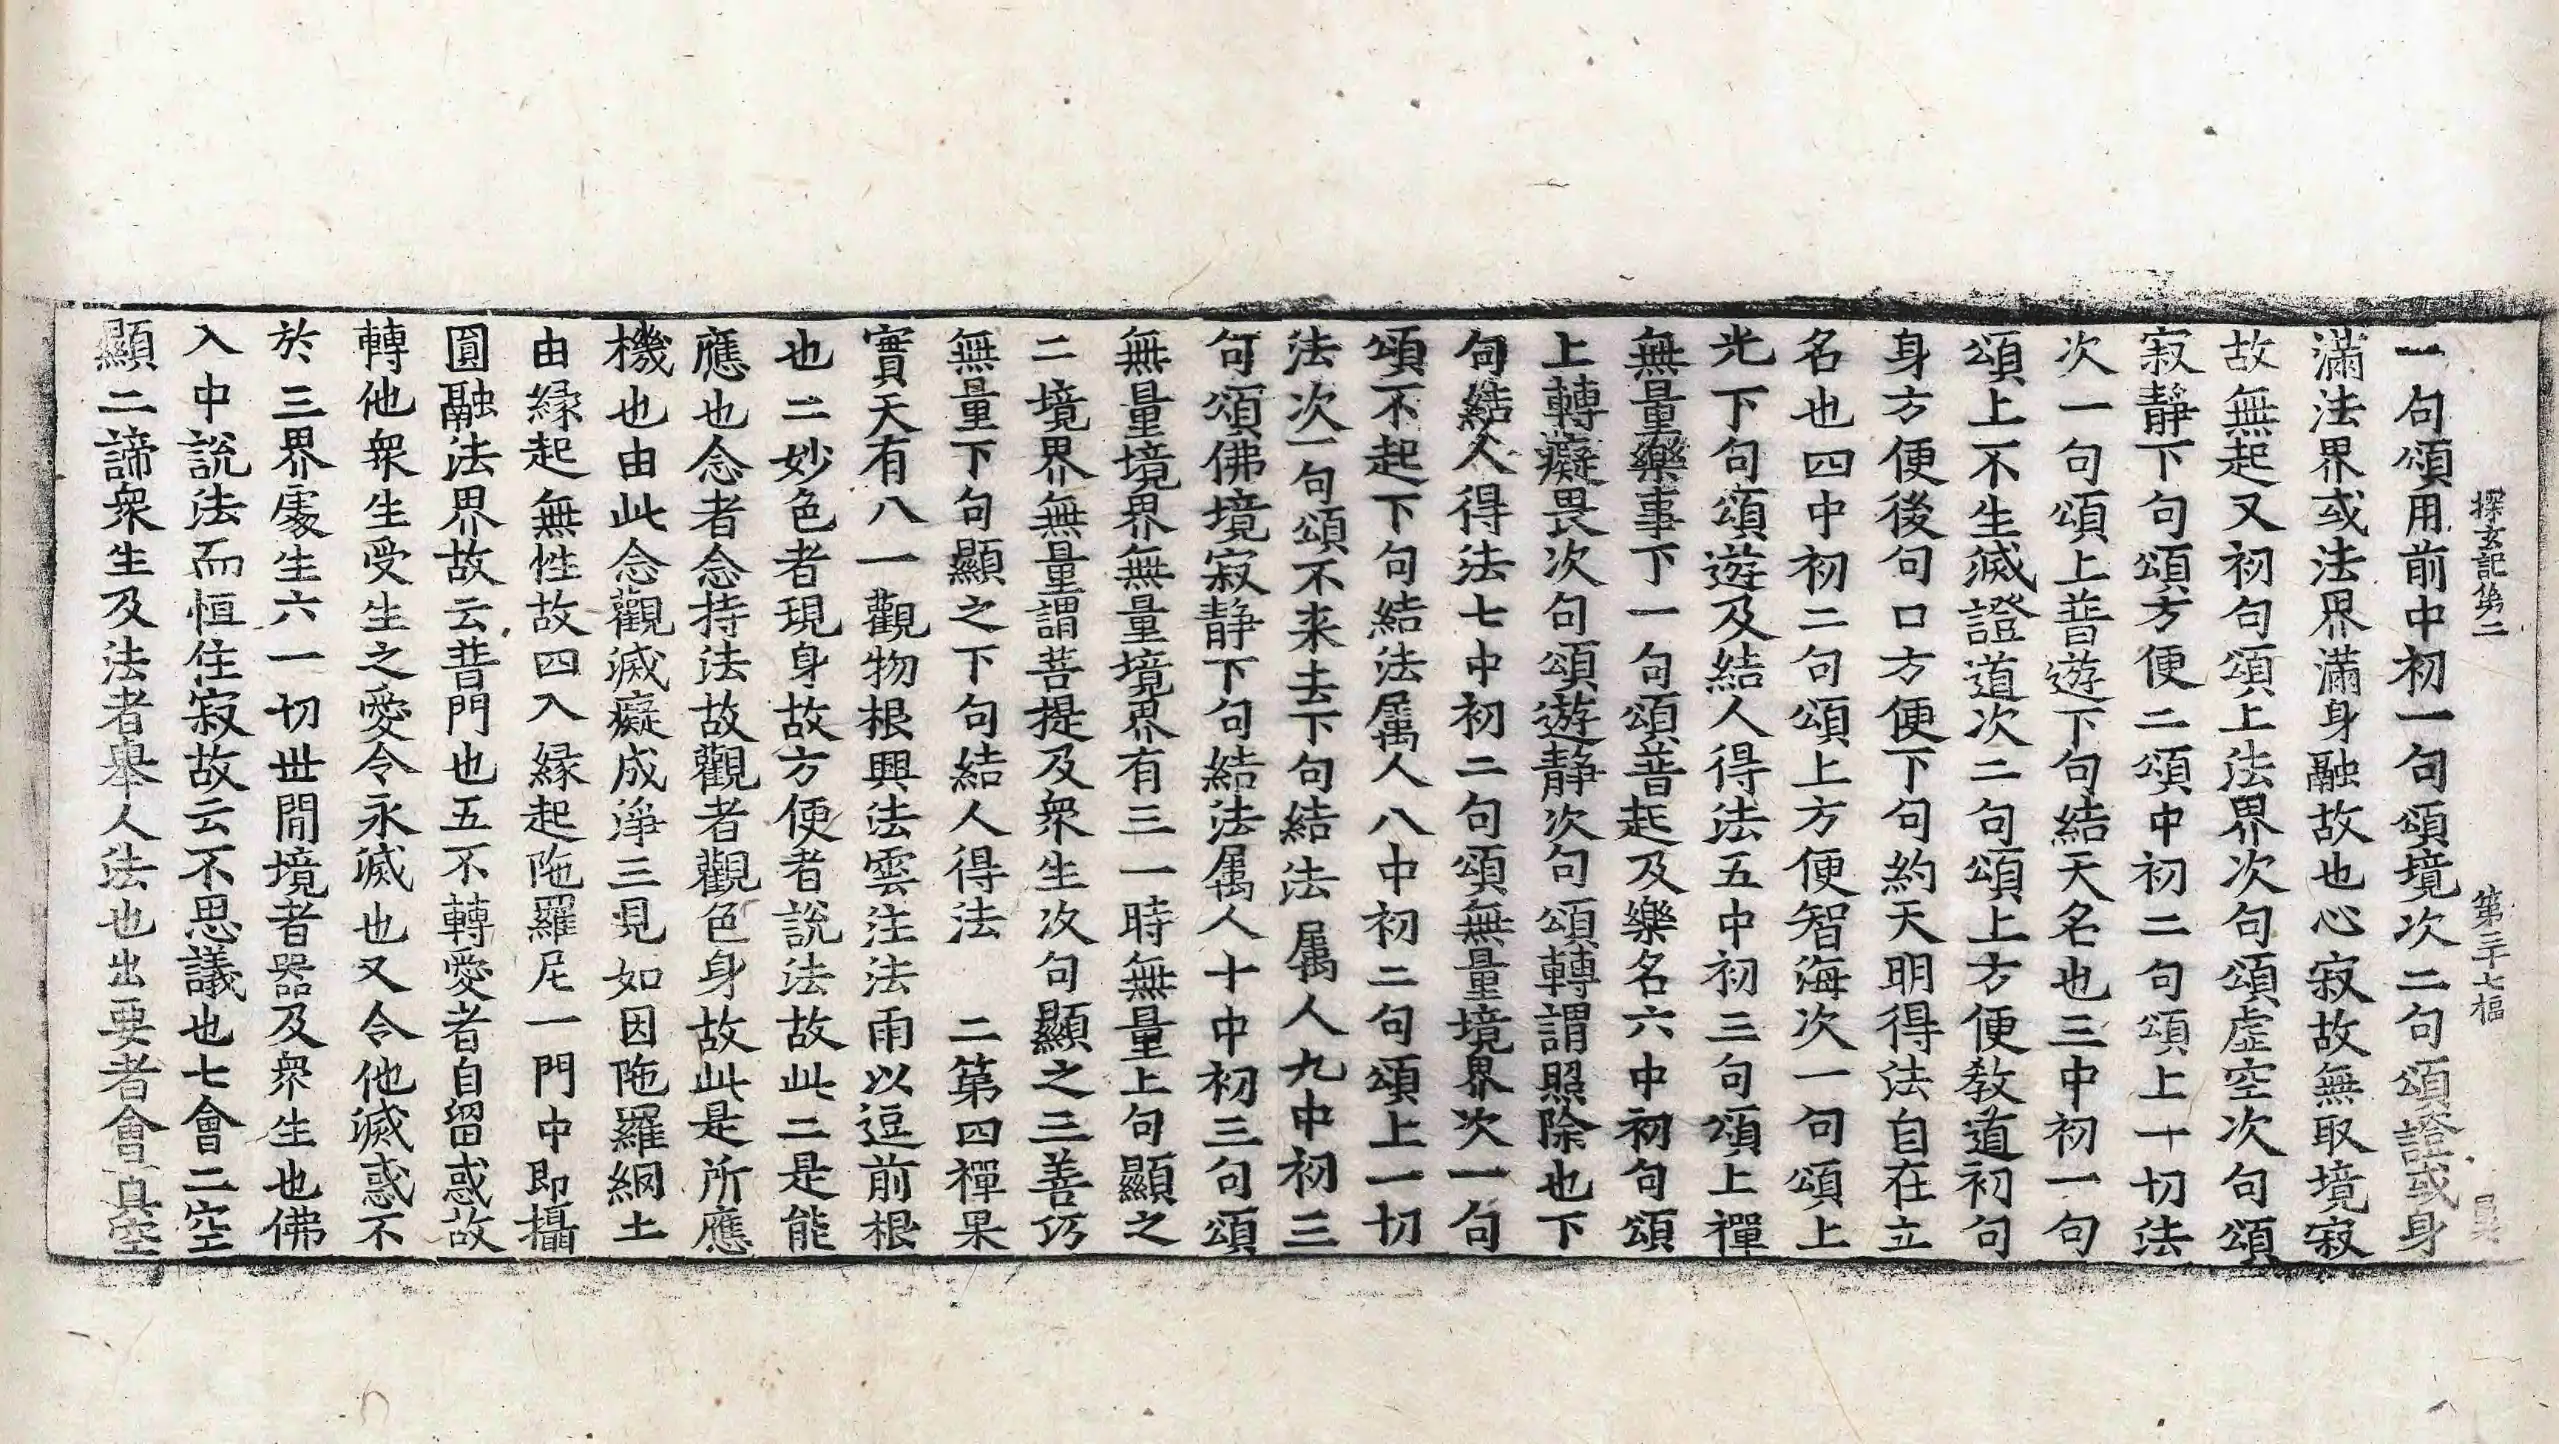 探玄記第二　第三十七幅　昊
一句頌用前中初一句頌境次二句頌證或身
滿法界或法界滿身融故也心寂故無取境寂
故無起又初句頌上法界次句頌虛空次句頌
寂靜下句頌方便二頌中初二句頌上一切法
次一句頌上普遊下句結天名也三中初一句
頌上不生滅證道次二句頌上方便教道初句
身方便後句口方便下句約天明得法自在立
名也四中初二句頌上方便智海次一句頌上
光下句頌遊及結人得法五中初三句頌上禪
無量樂事下一句頌普起及樂名六中初句頌
上轉癡畏次句頌遊靜次句頌轉謂照除也下
句結人得法七中初二句頌無量境界次一句
頌不起下句結法属人八中初二句頌上一切
法次一句頌不来去下句結法属人九中初三
句頌佛境寂静下句結法属人十中初三句頌
無量境界無量境界有三一時無量上句顯之
二境界無量謂菩提及衆生次句顯之三善巧
無量下句顯之下句結人得法　二第四禪果
實天有八一觀物根興法雲注法雨以逗前根
也二妙色者現身故方便者說法故此二是能
應也念者念持法故觀者觀色身故此是所應
機也由此念觀滅癡成淨三見如因陁羅網土
由緣起無性故四入緣起陁羅尼一門中即攝
圓融法界故云普門也五不轉愛者自留惑故
轉他衆生受生之愛令永滅也又令他滅惑不
於三界處生六一切世間境者器及衆生也佛
入中說法而恒住寂故云不思議也七會二空
顯二諦衆生及法者舉人法也出要者會真空